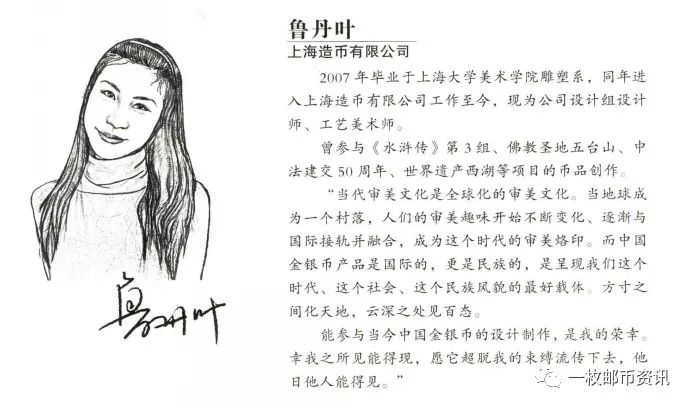 鲁丹叶
上海造币有限公司
2007年毕业于上海大学美术学院雕塑系，同年进
入上海造币有限公司工作至今，现为公司设计组设计
师、工艺美术师。
曾参与《水浒传》第3组、佛教圣地五台山、中
法建交50周年、世界遗产西湖等项目的币品创作。
“当代审美文化是全球化的审美文化。当地球成
为一个村落，人们的审美趣味开始不断变化、逐渐与
国际接轨并融合，成为这个时代的审美烙印。而中国
金银币产品是国际的，更是民族的，是呈现我们这个
时代、这个社会、这个民族风貌的最好载体。方寸之
间化天地，云深之处见百态。
能参与当今中国金银币的设计制作，是我的荣幸。
幸我之所见能得现，愿它超脱我的束缚流传下去，他
日他人能得见。”
鲁丹叶
一枚邮币资讯